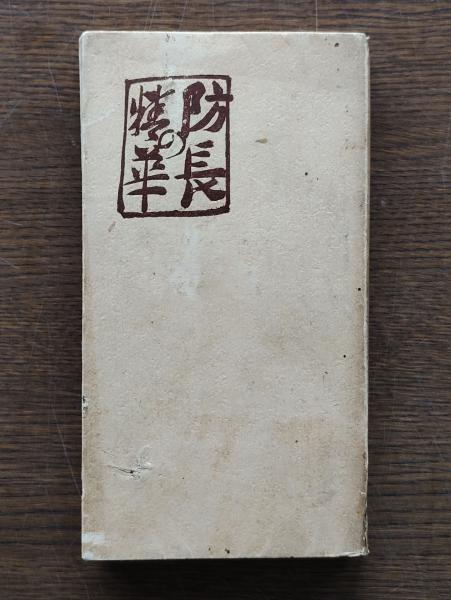 防長
の精華